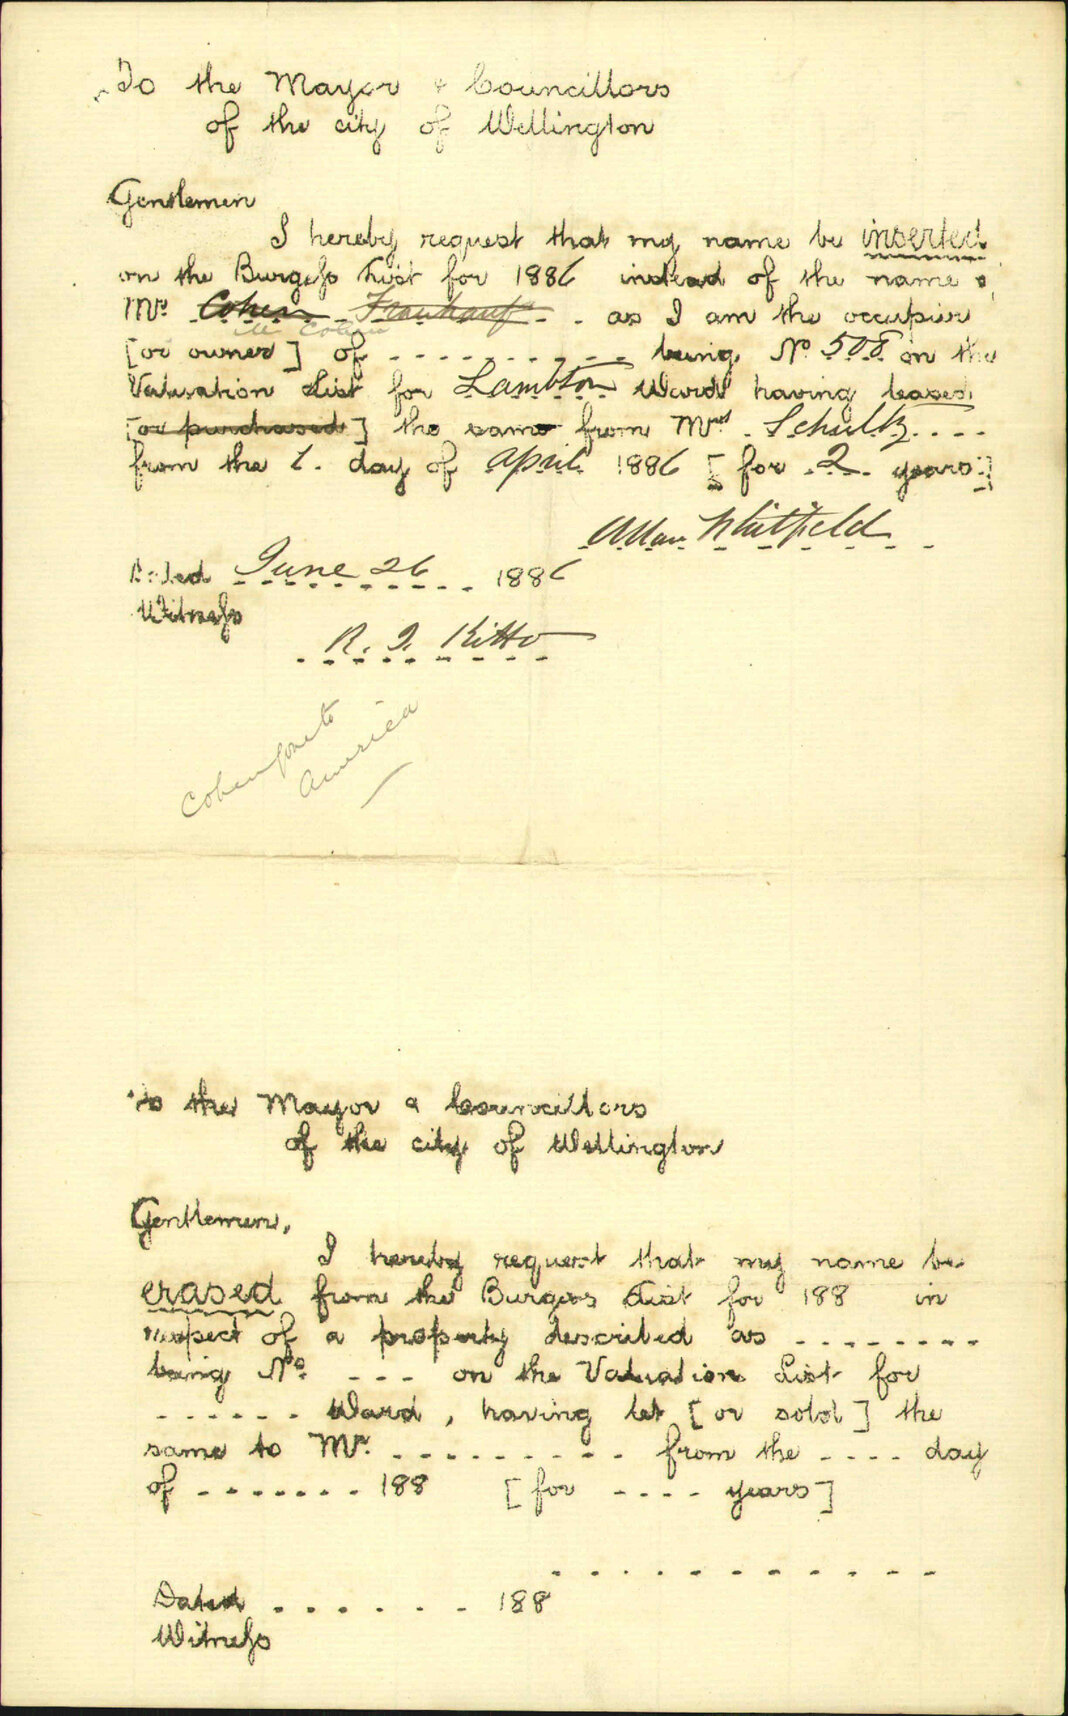 To the Mayor & Councillors
of the city of Wellington
Gentlemen
I hereby request that my name be inserted
on the Burgess List for 1886 instead of the name o
Mr. Cohen Frauhauf - - as I am the occupier
Mr Cohen
[or owner] of - - - - - - - - - - being No. 508 on the
Valuation List for Lambton Ward having leased
[or purchased] the same from Mrs. Schultz - - - -
from the 1. day of April 1886 [for 2 years.]
Allan Whitfield
Dated June 26 1886
Witness
R. J. Kitto
Cohen gone to
America
To the Mayor & Councillors
of the city of Wellington
Gentlemen,
I hereby request that my name be
erased from the Burgess List for 188 in
respect of a property described as - - - - - - - -
being No. - - - on the Valuation List for
- - - - - - Ward, having let [or sold] the
same to Mr. - - - - - - - - - from the - - - - day
of - - - - - - - 188 [for - - - - years]
Dated - - - - - - - 188
Witness